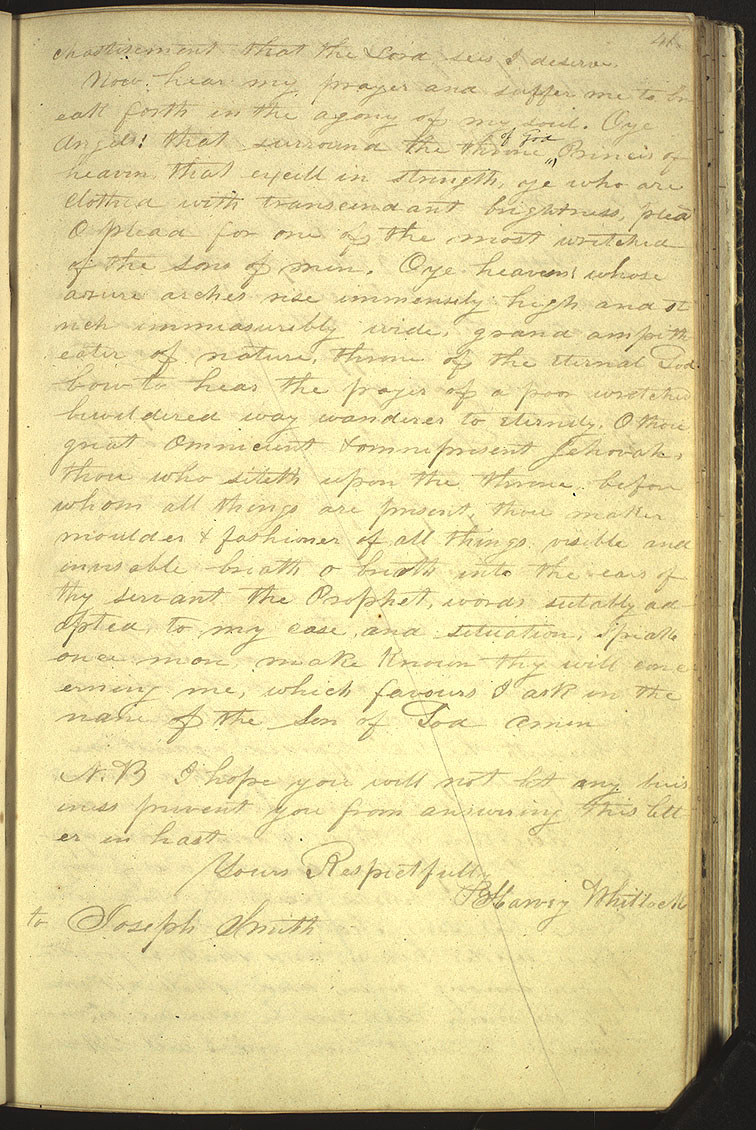 41
chastisement that the Lord sees I deserve.
Now hear my prayer and suffer me to br
eak forth in the agony of my soul. O ye
Angels! that surround the throne of God, Princes of
heaven that excell in strength, ye who are
clothed with transcendant brightness, plead
O plead for one of the most wretched
of the sons of men. O ye heavens! whose
azure arches rise immensely high and st
rech immeasurebly wide, grand ampith
eater of nature, throne of the eternal God
bow to hear the prayer of a poor wretched
bewildered way wanderer to eternity. O thou
great Omnicient & omnipresent Jehovah,
thou who siteth upon the throne, before
whom all things are present, thou maker
moulder & fashioner of all things visible and
invisable breath o breath into the ears of
thy servant the Prophet, words sutably ad
apted, to my case, and situation, speak
once more, make known thy will conc
erning me, which favours I ask in the
name of the Son of God amen
N. B I hope you will not let any buis
iness prevent you from answering this lett
er in hast
Yours Respectfully
Harvey Whitlock
to Joseph Smith